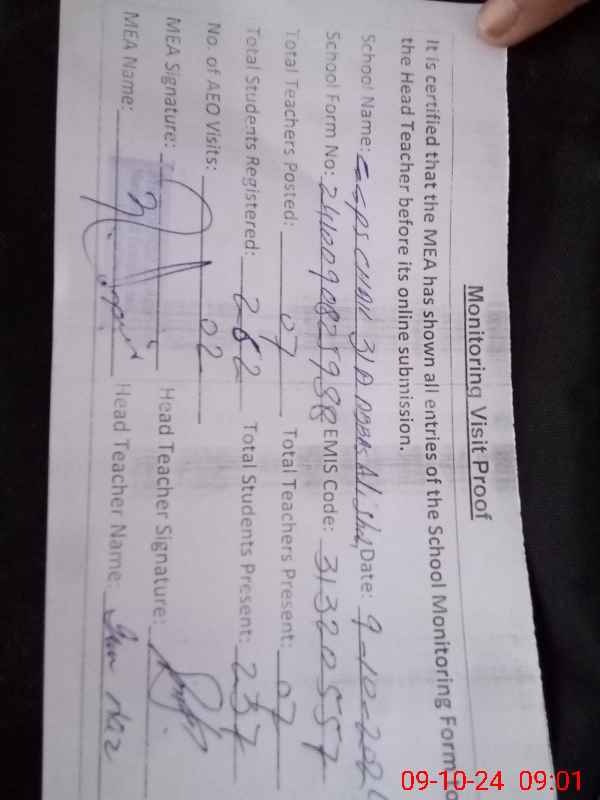 Monitoring Visit Proof
It is certified that the MEA has shown all entries of the School Monitoring Form to
the Head Teacher before its online submission.
School Name: CHAK 31 A ABBAS Ali Shah, Date: 9-10-202
School Form No: EMIS Code: 31320557
Total Teachers Posted: 07 Total Teachers Present: 07
Total Students Registered: 262 Total Students Present: 237
No. of AEO Visits: 02
MEA Signature: Head Teacher Signature:
MEA Name: Head Teacher Name:
09-10-24 09:01